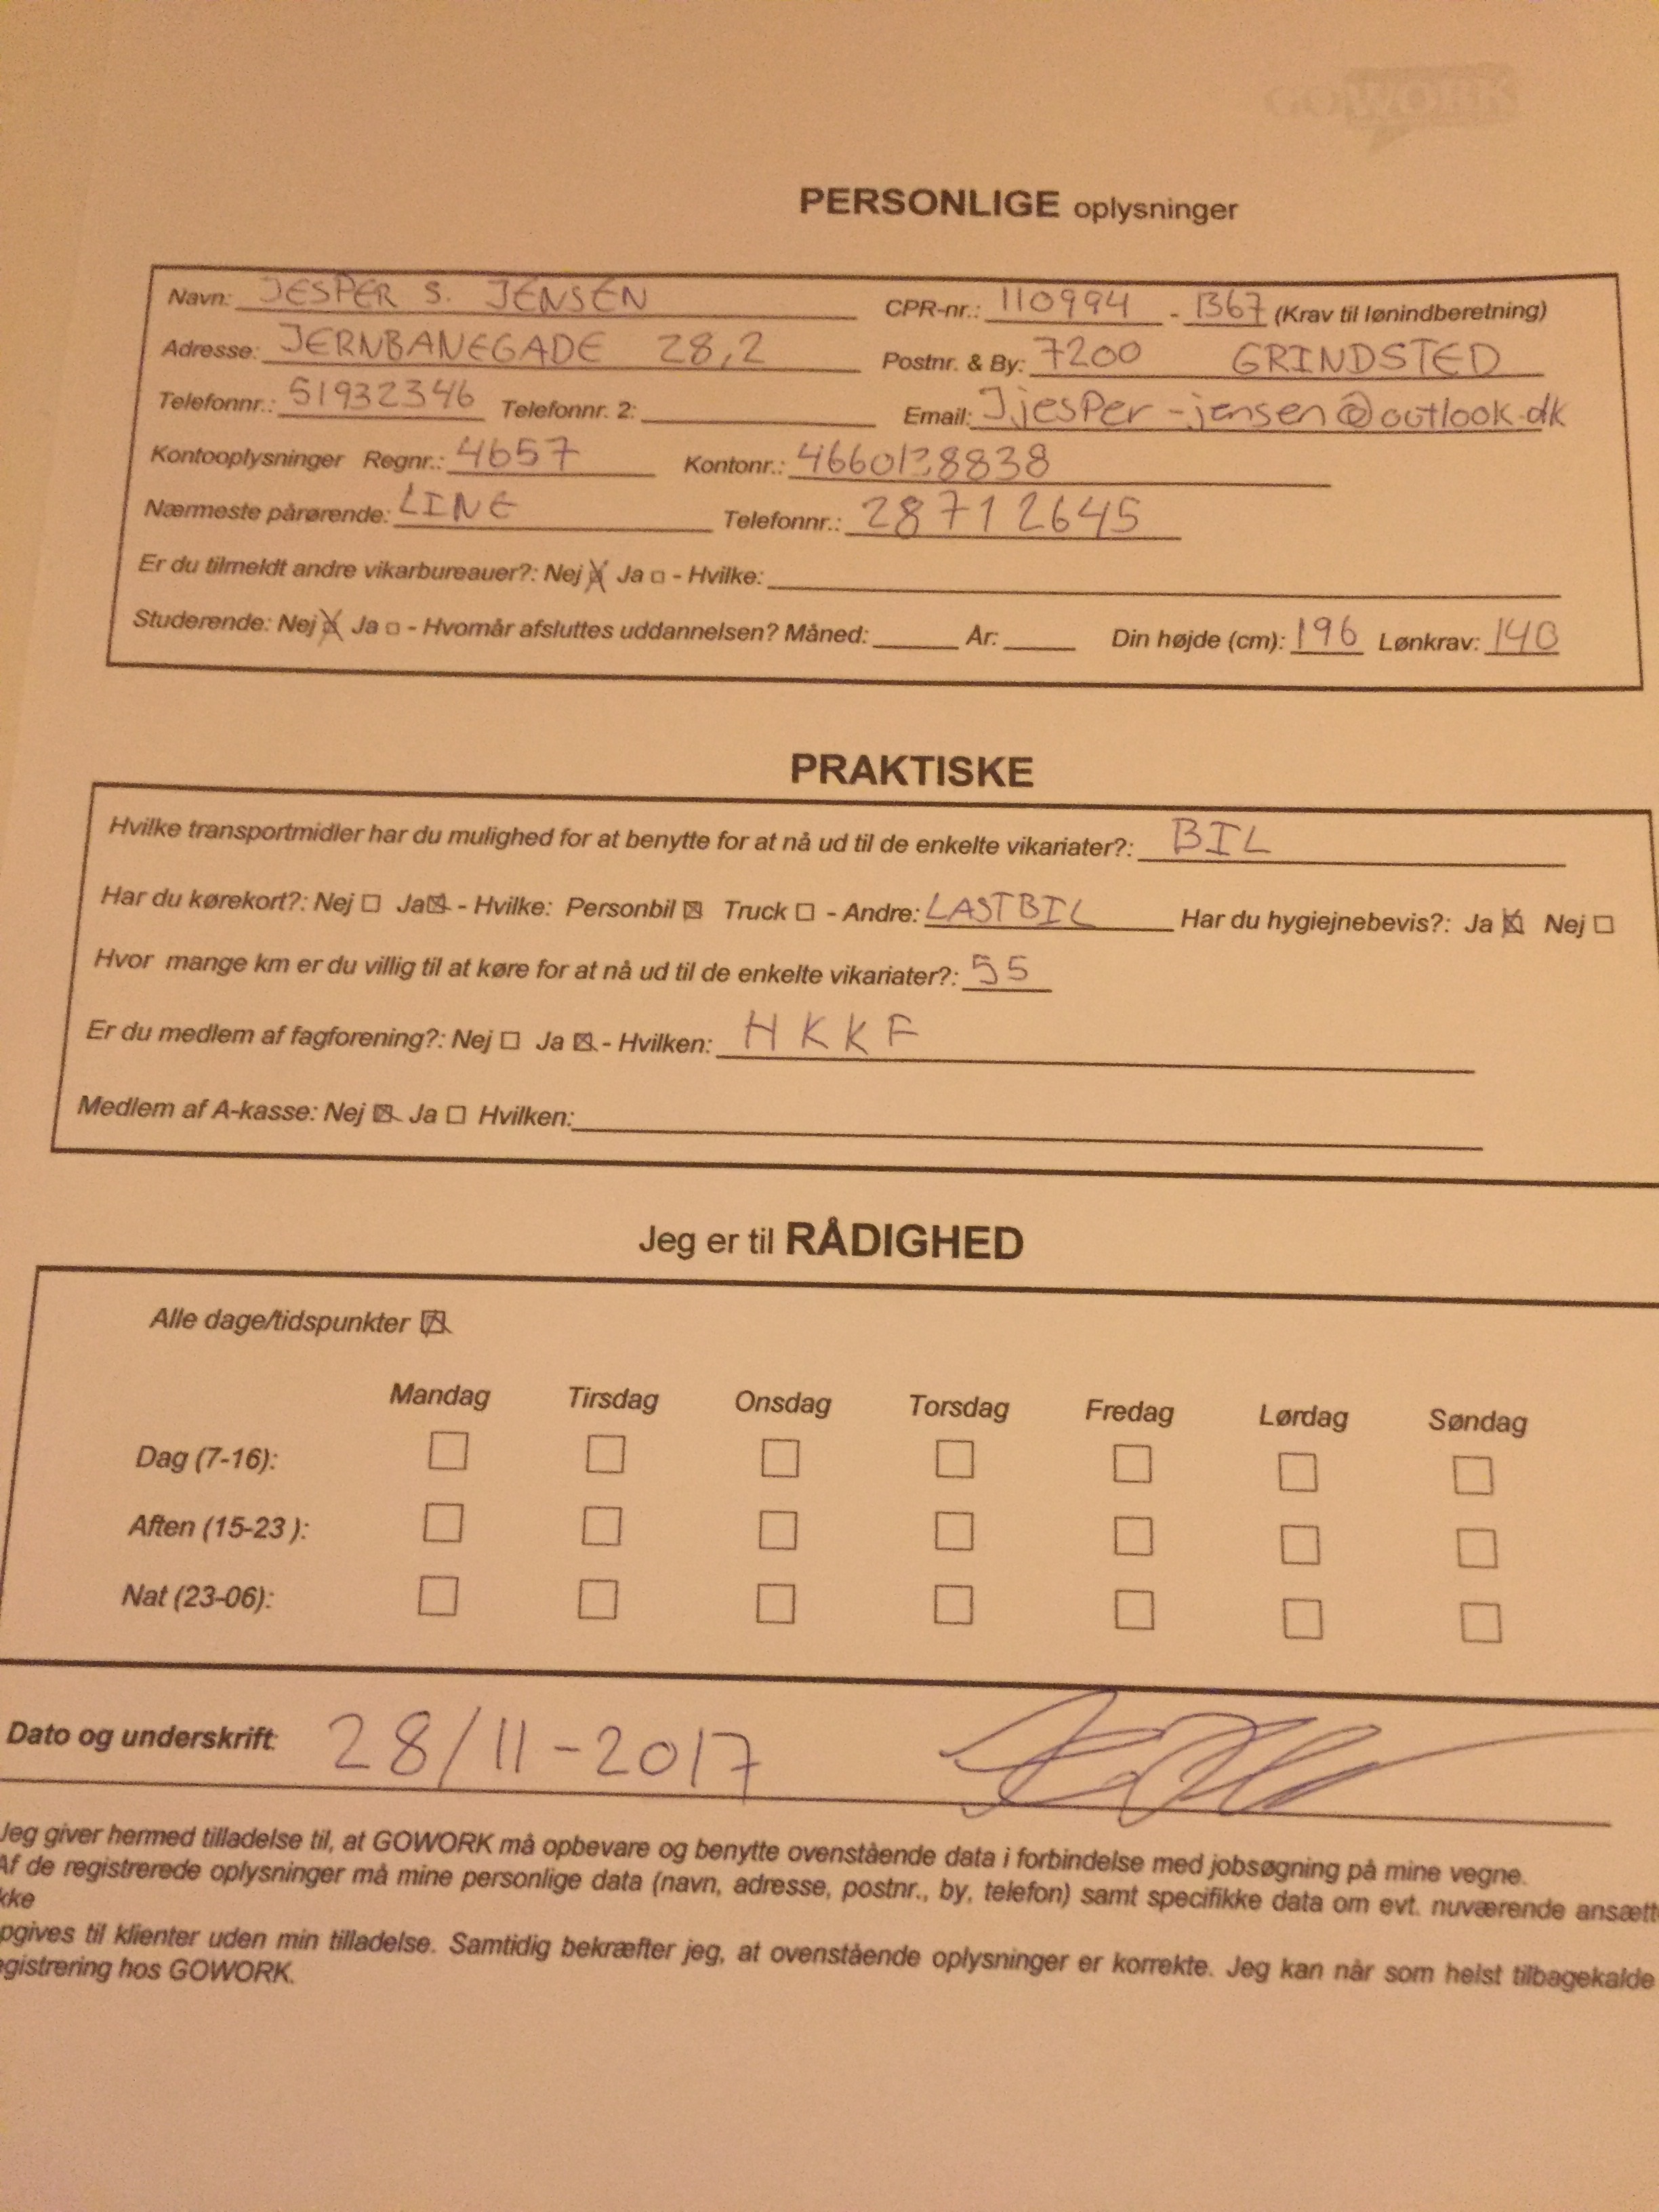 GOWORK
PERSONLIGE oplysninger
Navn: JESPER S. JENSEN CPR-nr.: 110994 - 1367 (Krav til lønindberetning)
Adresse: JERNBANEGADE 28,2 Postnr. & By: 7200 GRINDSTED
Telefonnr.: 51932346 Telefonnr. 2: Email: Jjesper-jensen@outlook.dk
Kontooplysninger Regnr.: 4657 Kontonr.:
Nærmeste pårørende: LINE Telefonnr.: 28712645
Er du tilmeldt andre vikarbureauer?: Nej ☒ Ja ☐ - Hvilke:
Studerende: Nej ☒ Ja ☐ - Hvornår afsluttes uddannelsen? Måned: År: Din højde (cm): 196 Lønkrav: 140
PRAKTISKE
Hvilke transportmidler har du mulighed for at benytte for at nå ud til de enkelte vikariater?: BIL
Har du kørekort?: Nej ☐ Ja ☒ - Hvilke: Personbil ☒ Truck ☐ - Andre: LASTBIL Har du hygiejnebevis?: Ja ☒ Nej ☐
Hvor mange km er du villig til at køre for at nå ud til de enkelte vikariater?: 55
Er du medlem af fagforening?: Nej ☐ Ja ☒ - Hvilken: HKKF
Medlem af A-kasse: Nej ☒ Ja ☐ Hvilken:
Jeg er til RÅDIGHED
Alle dage/tidspunkter ☒
Mandag Tirsdag Onsdag Torsdag Fredag Lørdag Søndag
Dag (7-16): ☐ ☐ ☐ ☐ ☐ ☐ ☐
Aften (15-23 ): ☐ ☐ ☐ ☐ ☐ ☐ ☐
Nat (23-06): ☐ ☐ ☐ ☐ ☐ ☐ ☐
Dato og underskrift: 28/11-2017
Jeg giver hermed tilladelse til, at GOWORK må opbevare og benytte ovenstående data i forbindelse med jobsøgning på mine vegne.
Af de registrerede oplysninger må mine personlige data (navn, adresse, postnr., by, telefon) samt specifikke data om evt. nuværende ansætt
kke
pgives til klienter uden min tilladelse. Samtidig bekræfter jeg, at ovenstående oplysninger er korrekte. Jeg kan når som helst tilbagekalde
egistrering hos GOWORK.